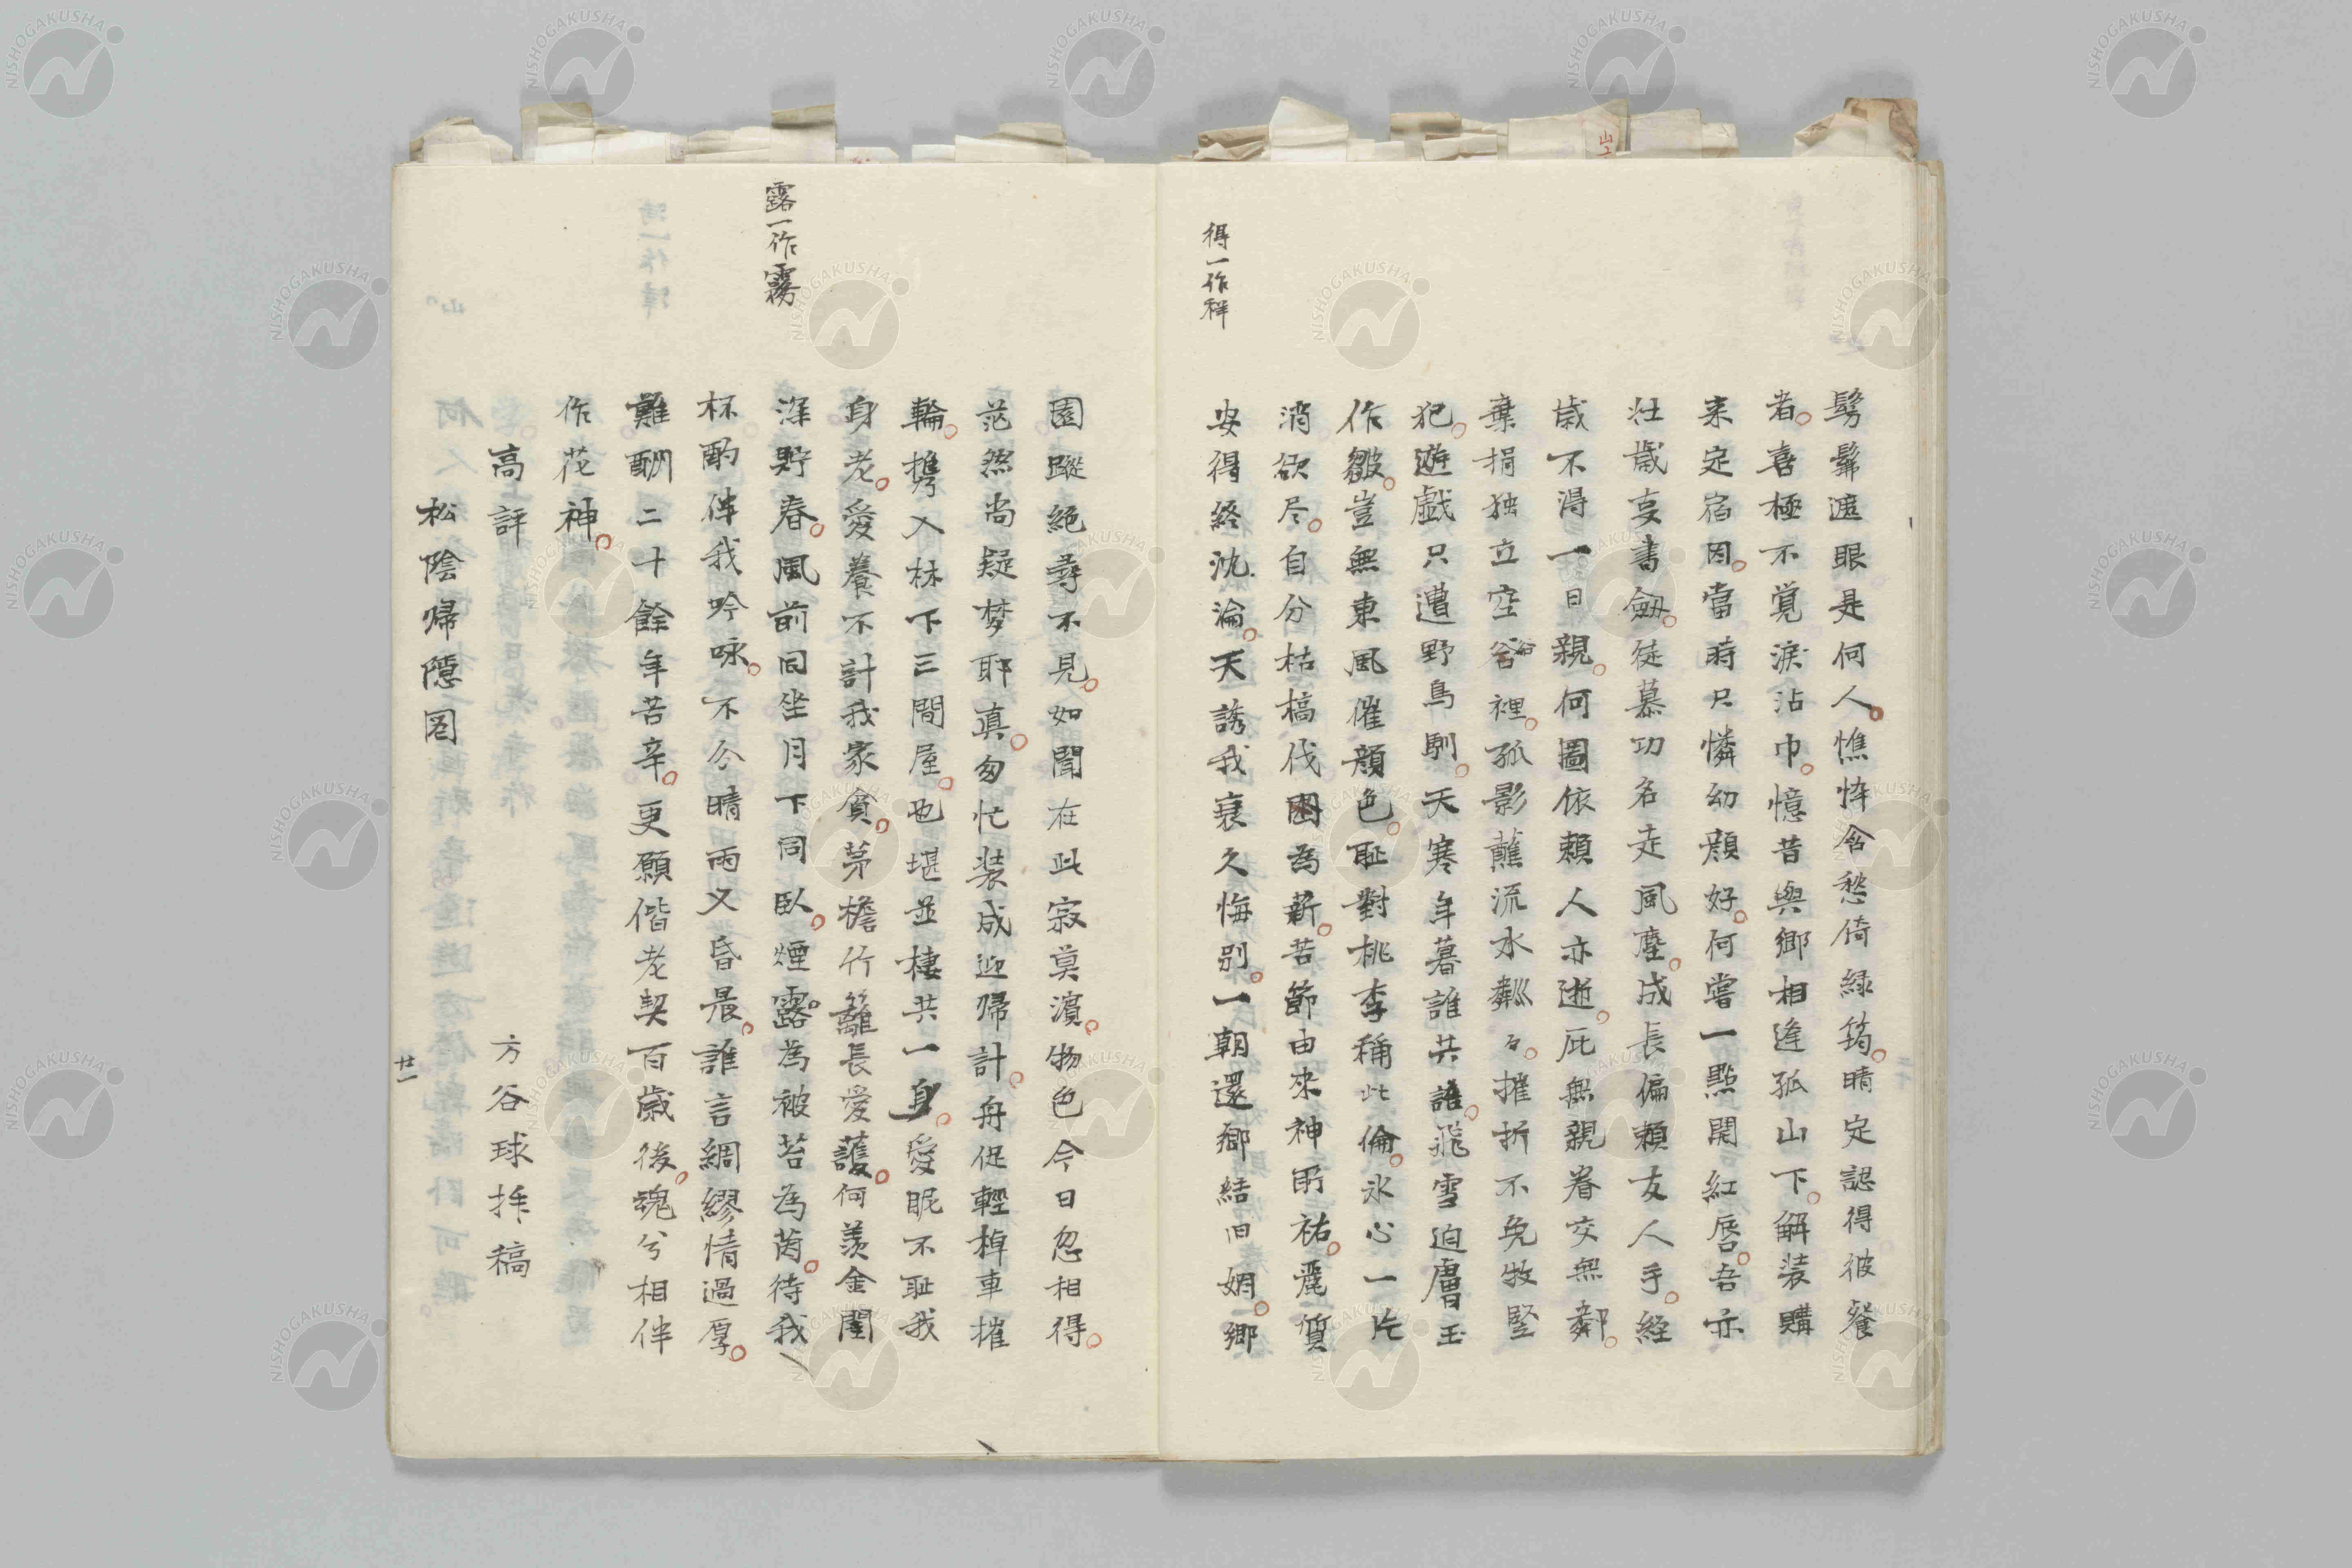 得一作稱
髣髴遮眼是何人。憔悴含愁倚緑筠。晴定認得彼餐
者。喜極不覚涙沾巾。憶昔與郷相逢孤山下。解装購
来定宿因。當時只憐幼顔好。何嘗一點開紅唇。吾亦
壮歳妄書劔。徒慕功名走風塵。成長偏頼友人手。経
歳不得一日親。何圖依頼人亦逝。庇無親眷交無鄰。
棄捐独立空谷裡。孤影蘸流水粼々。摧折不免牧竪
犯。遊戯只遭野鳥馴。天寒年暮誰共語。飛雪迫膚玉
作皺。豈無東風催顔色。耻對桃李稱此倫。氷心一片
消欲尽。自分枯槁伐為薪。苦節由来神所祐。麗質
安得終沈淪。天誘我衰久悔別。一朝還郷結旧姻。郷
露一作霧
園蹤絶尋不見。如聞在此寂莫濵。物色今日忽相得。
茫然尚疑梦耶真。匆忙装成迎帰計。舟促輕棹車摧
輪。携入林下三間屋。也堪並棲共一身。愛眤不耻我
身老。愛養不計我家貧。茅檐竹籬長愛護。何羨金閨
深貯春。風前同坐月下同臥。煙露為被苔為茵。待我
杯酌伴我吟咏。不令晴雨又昏晨。誰言綢繆情過厚。
難酬二十餘年苦辛。更願偕老契百歳後。魂兮相伴
作花神。
高評
方谷球拝稿
松陰帰隠圖
廿一